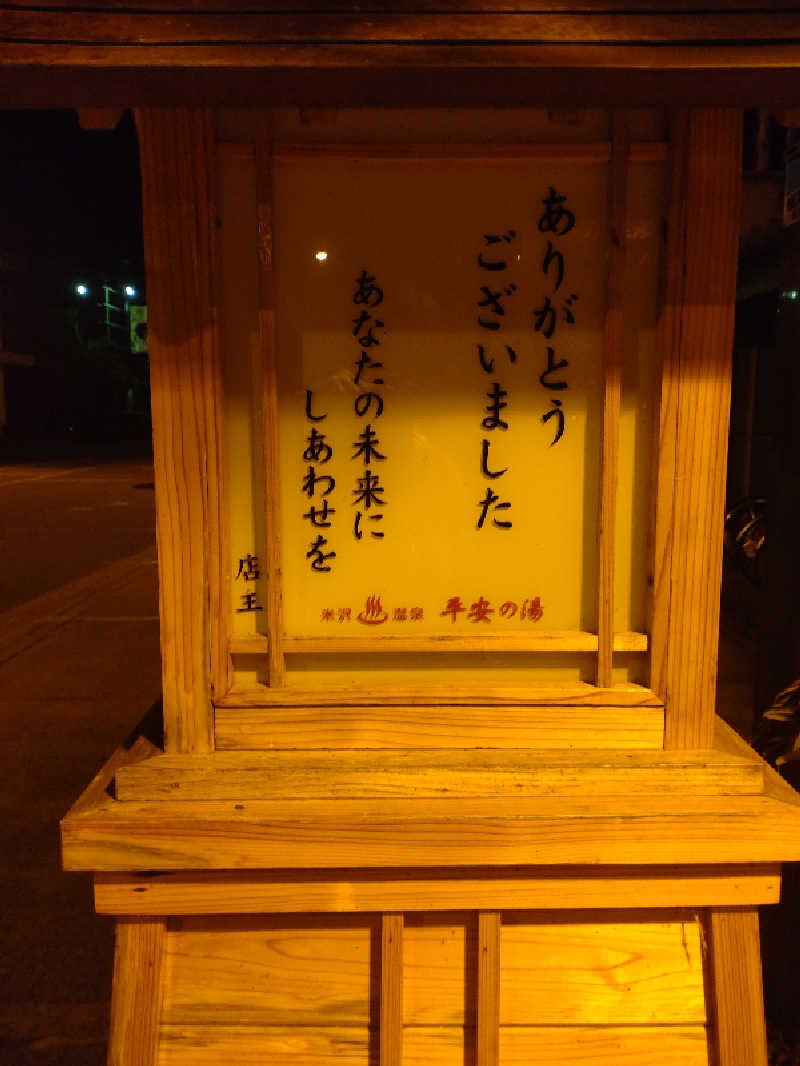 ありがとう
ございました
あなたの未来に
しあわせを
店王
米沢♨温泉 平安の湯